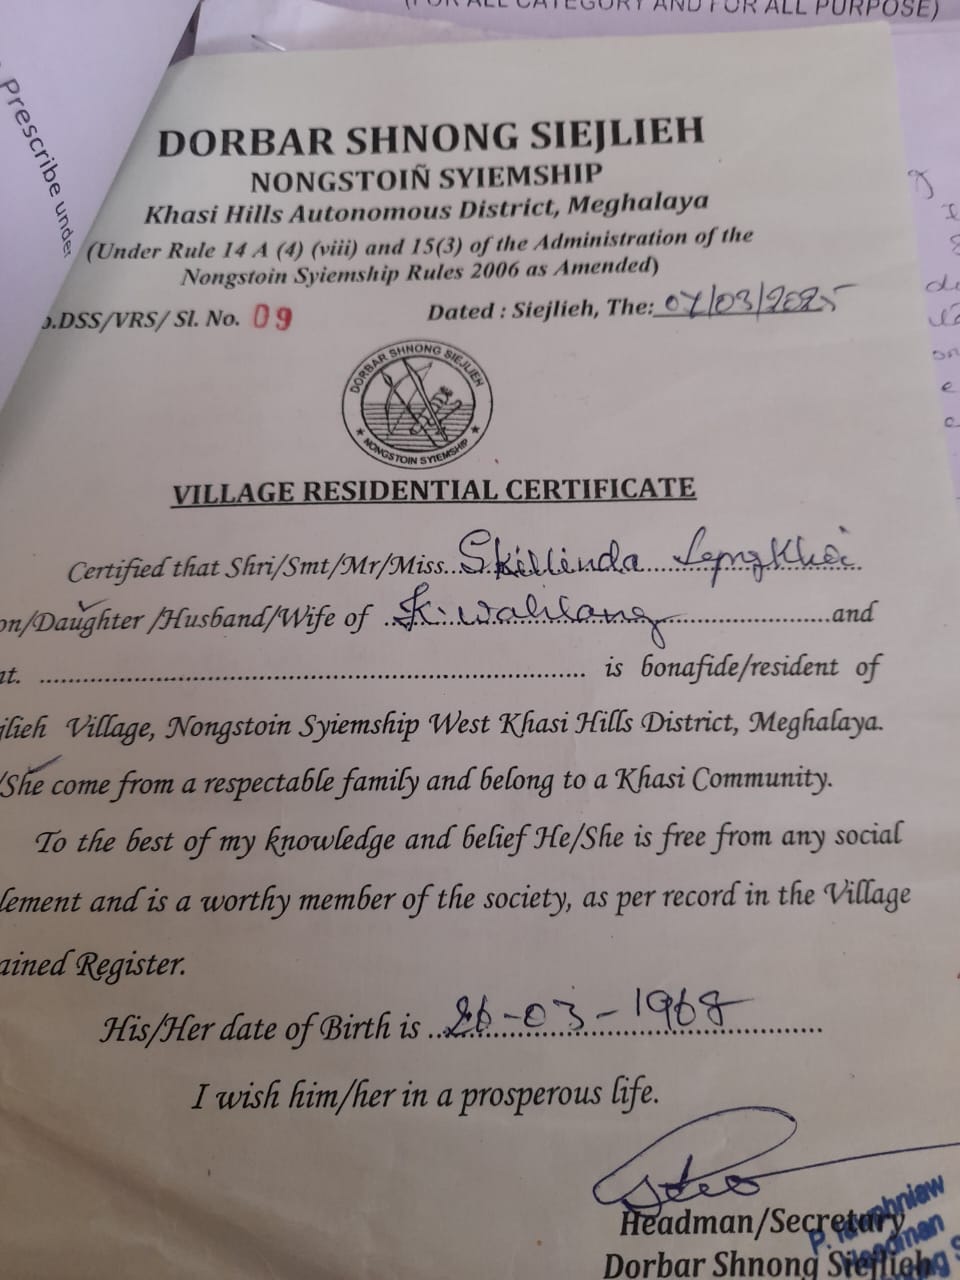 (FOR ALL CATEGORY AND FOR ALL PURPOSE)
Prescribe under
DORBAR SHNONG SIEJLIEH
NONGSTOIÑ SYIEMSHIP
Khasi Hills Autonomous District, Meghalaya
(Under Rule 14 A (4) (viii) and 15(3) of the Administration of the
Nongstoin Syiemship Rules 2006 as Amended)
.DSS/VRS/ Sl. No. 09 Dated : Siejlieh, The: 07/03/2025
DORBAR SHNONG SIEJLIEH
NONGSTOIN SYIEMSHIP
VILLAGE RESIDENTIAL CERTIFICATE
Certified that Shri/Smt/Mr/Miss Skillinda
on/Daughter /Husband/Wife of K. wahlang and
nt. is bonafide/resident of
jlieh Village, Nongstoin Syiemship West Khasi Hills District, Meghalaya.
/She come from a respectable family and belong to a Khasi Community.
To the best of my knowledge and belief He/She is free from any social
lement and is a worthy member of the society, as per record in the Village
ained Register.
His/Her date of Birth is 26-03-1968
I wish him/her in a prosperous life.
Headman/Secretary
Dorbar Shnong Siejlieh
Headman